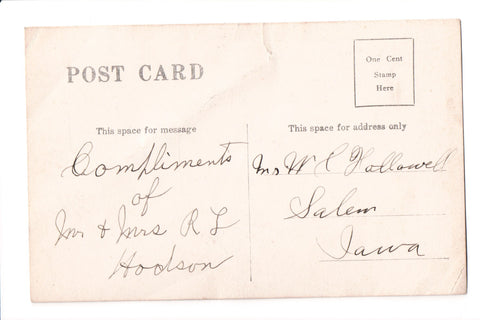 POST CARD
One Cent
Stamp
Here
This space for message
Compliments
of
Mr & Mrs R L
Hodson
This space for address only
Mr W C Hollowell
Salem
Iawa